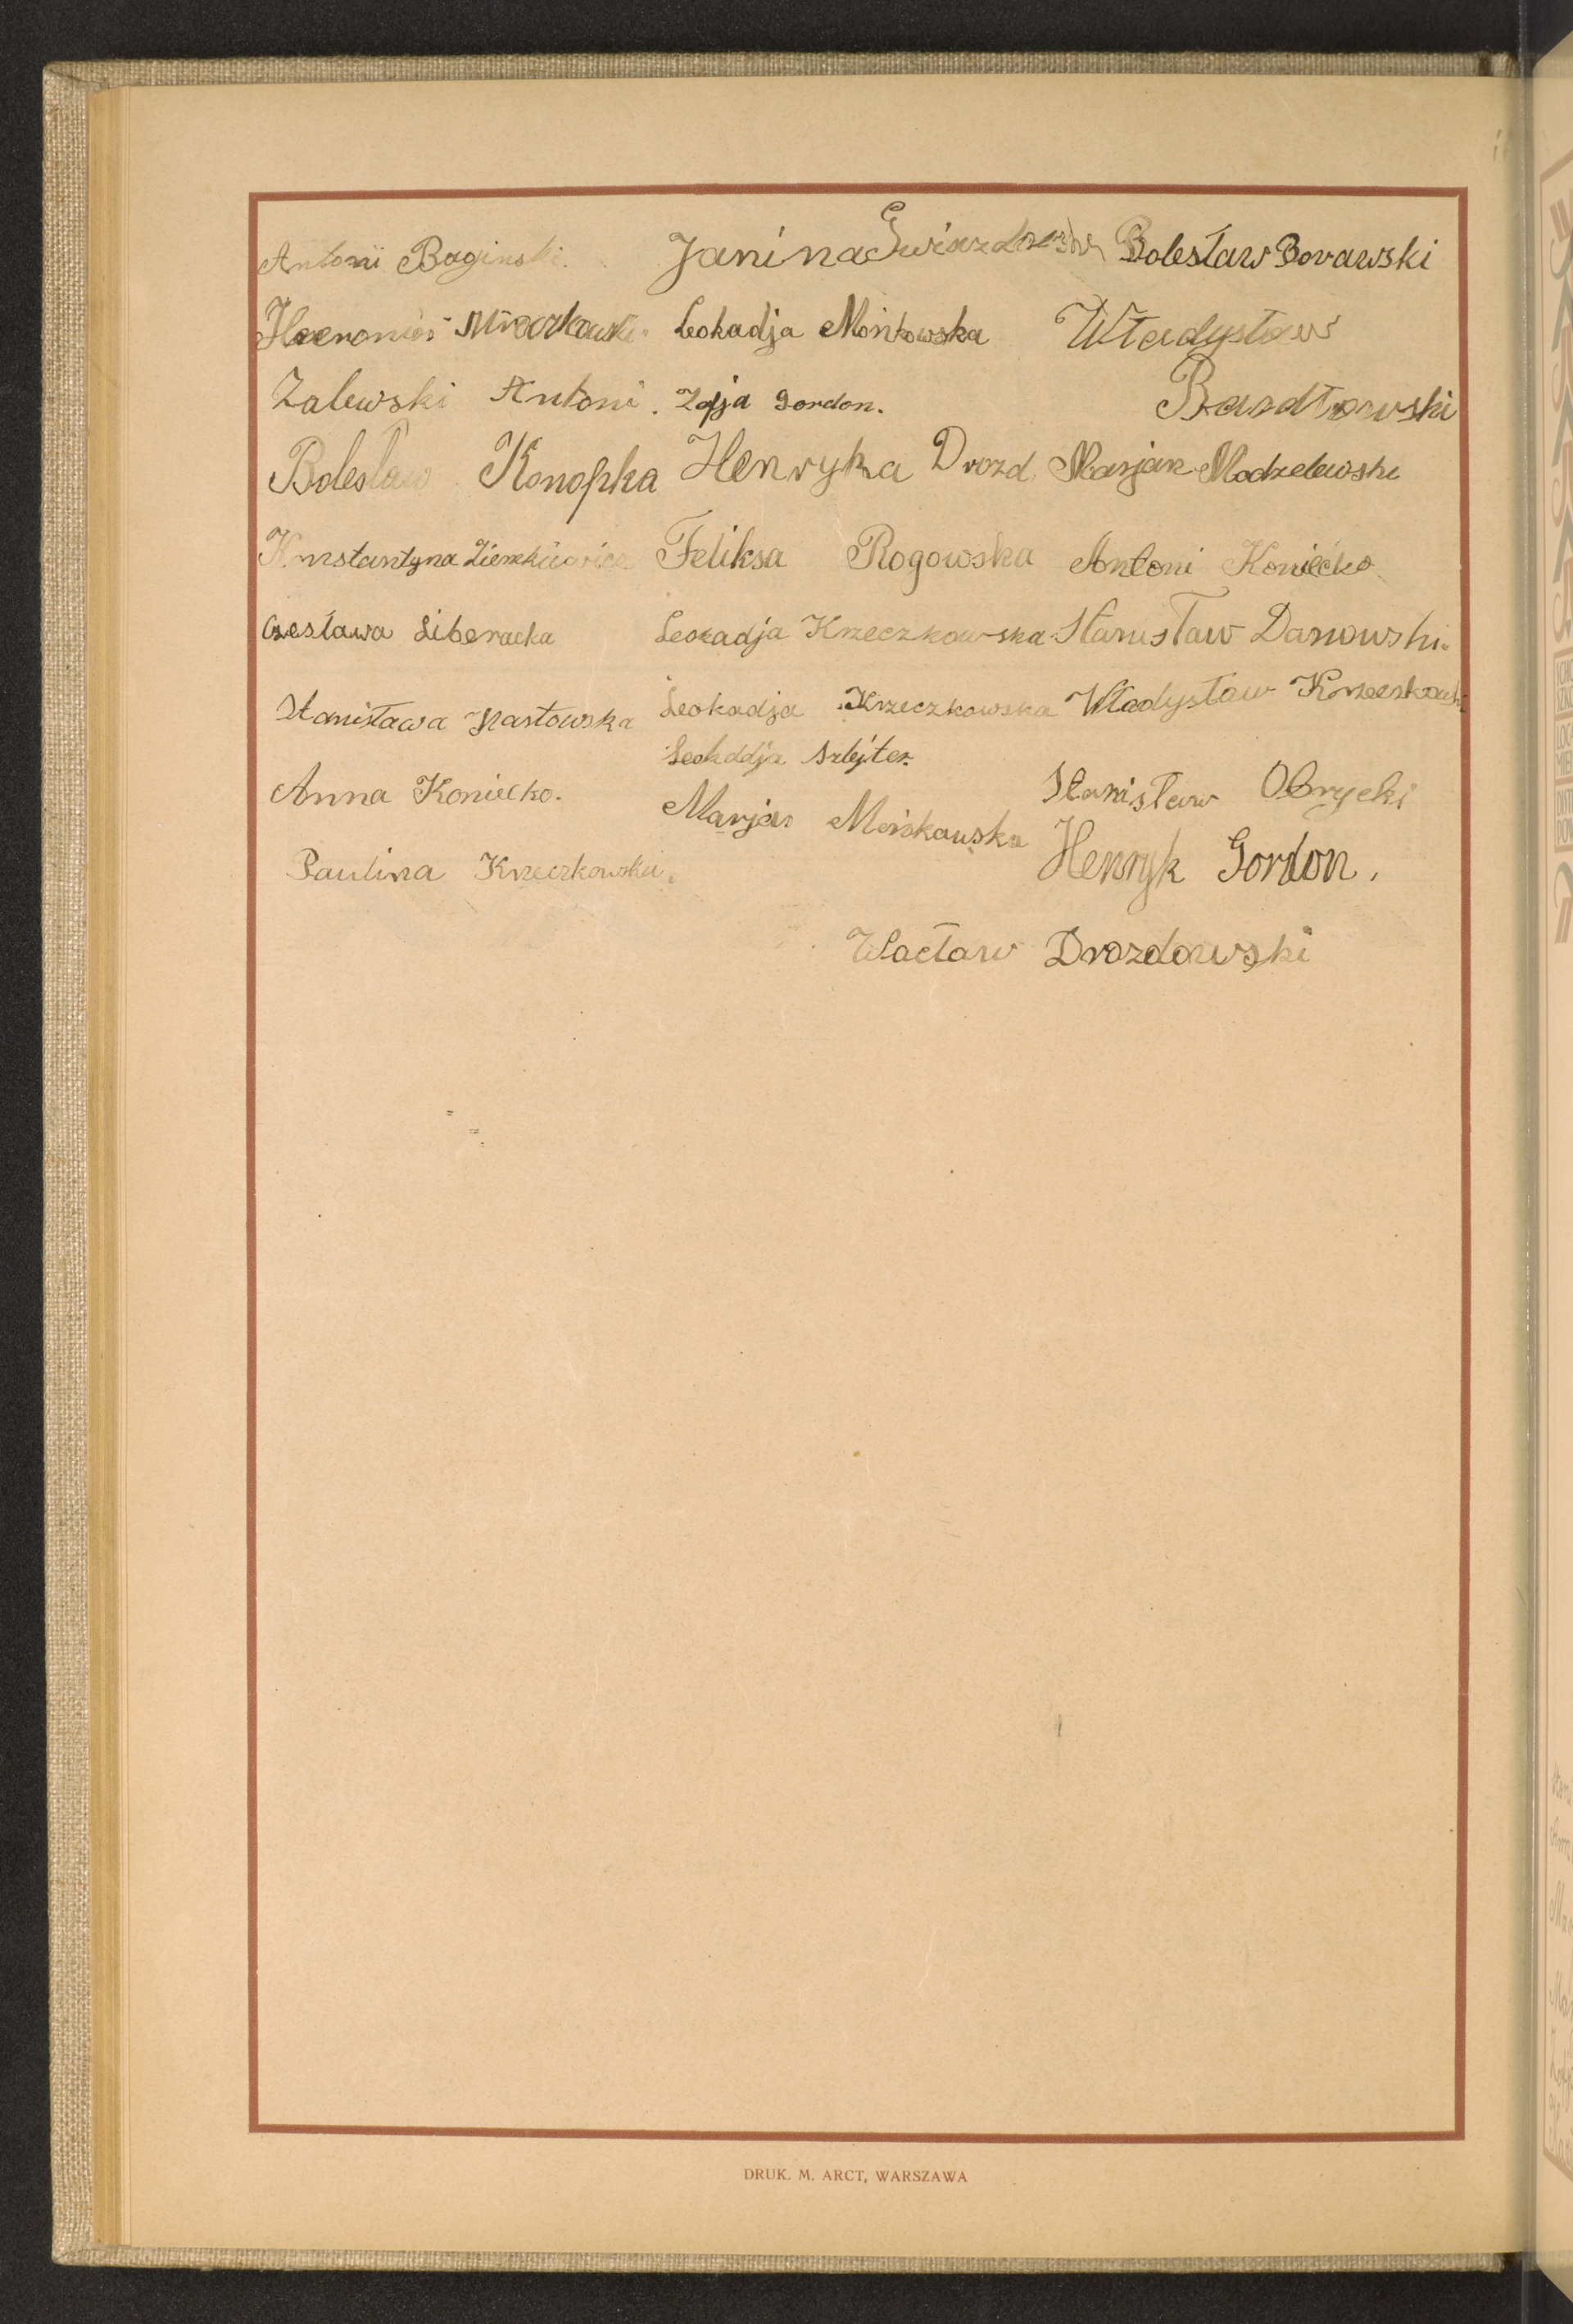 Antoni Baginski. Janina Bolesław Borawski
Leokadja Mońkowska Władysław
Zalewski Antoni. Zofja Gordon.
Bolesław Konopka Henryka Drozd. Marjan Modzelewski
Konstantyna Feliksa Rogowska Antoni Koniecko
Czesława Liberacka Leokadja Krzeczkowska Stanisław Danowski.
Stanisława Leokadja Krzeczkowska Władysław Krzeczkowski
Leokadja Szlejter.
Anna Koniecko. Stanisław Obrycki
Marja
Paulina Krzeczkowska. Henryk Gordon.
Wacław Drozdowski
DRUK. M. ARCT, WARSZAWA